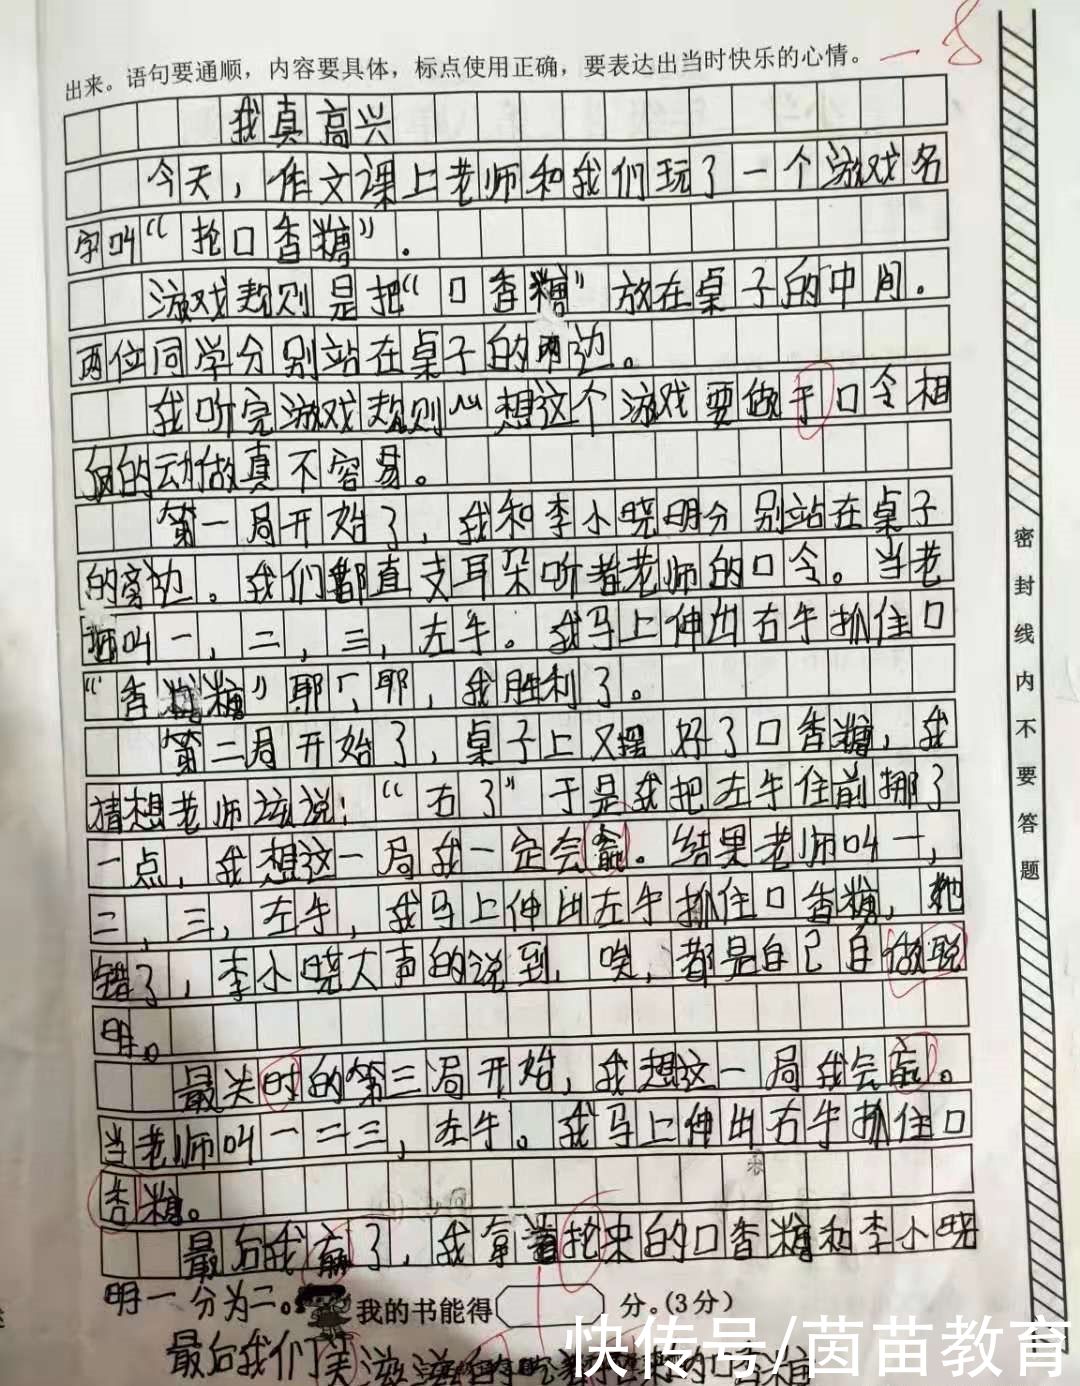 出来。语句要通顺，内容要具体，标点使用正确，要表达出当时快乐的心情。 一 8
我真高兴
今天，作文课上老师和我们玩了一个游戏名
字叫“抢口香糖”.
游戏规则是把“口香糖”放在桌子的中间.
两位同学分别站在桌子的两边。
我听完游戏规则心想这个游戏要做于口令相
反的动做真不容易。
第一局开始了，我和李小晓明分别站在桌子
的旁边。我们都直支耳朵听者老师的口令。当老
师叫一，二，三，左手。我马上伸出右手抓住口
“香糖”耶，耶，我胜利了。
第二局开始了，桌子上又摆好了口香糖，我
猜想老师该说：“右了”于是我把左手住前挪了
一点，我想这一局我一定会赢。结果老师叫一，
二，三，左手，我马上伸出左手抓住口香糖，她
错了，李小晓大声的说到，唉，都是自己自做聪
明。
最关时的第三局开始，我想这一局我会赢。
当老师叫一二三，左手。我马上伸出右手抓住口
香糖。
最后我赢了，我拿着抢来的口香糖和李小晓
明一分为二。 我的书能得 分。(3分)
最后我们美滋滋的吃着的口香糖
密封线内不要答题
快传号/茵苗教育